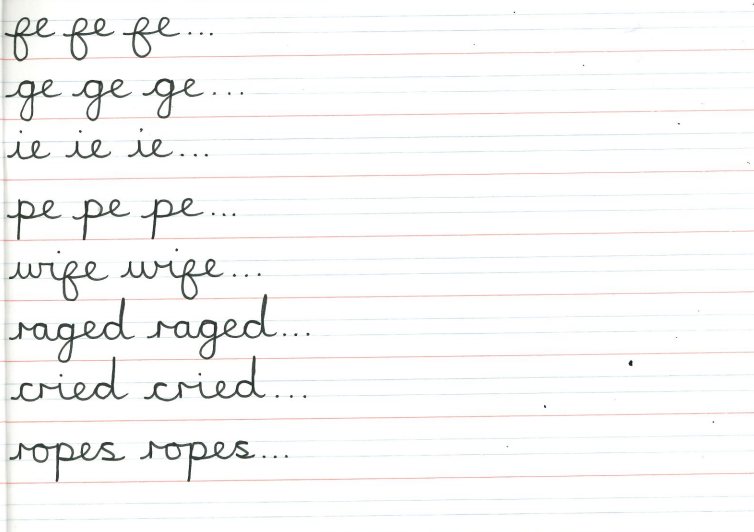 fe fe fe...
ge ge ge...
ie ie ie...
pe pe pe...
wife wife...
raged raged...
cried cried...
ropes ropes...